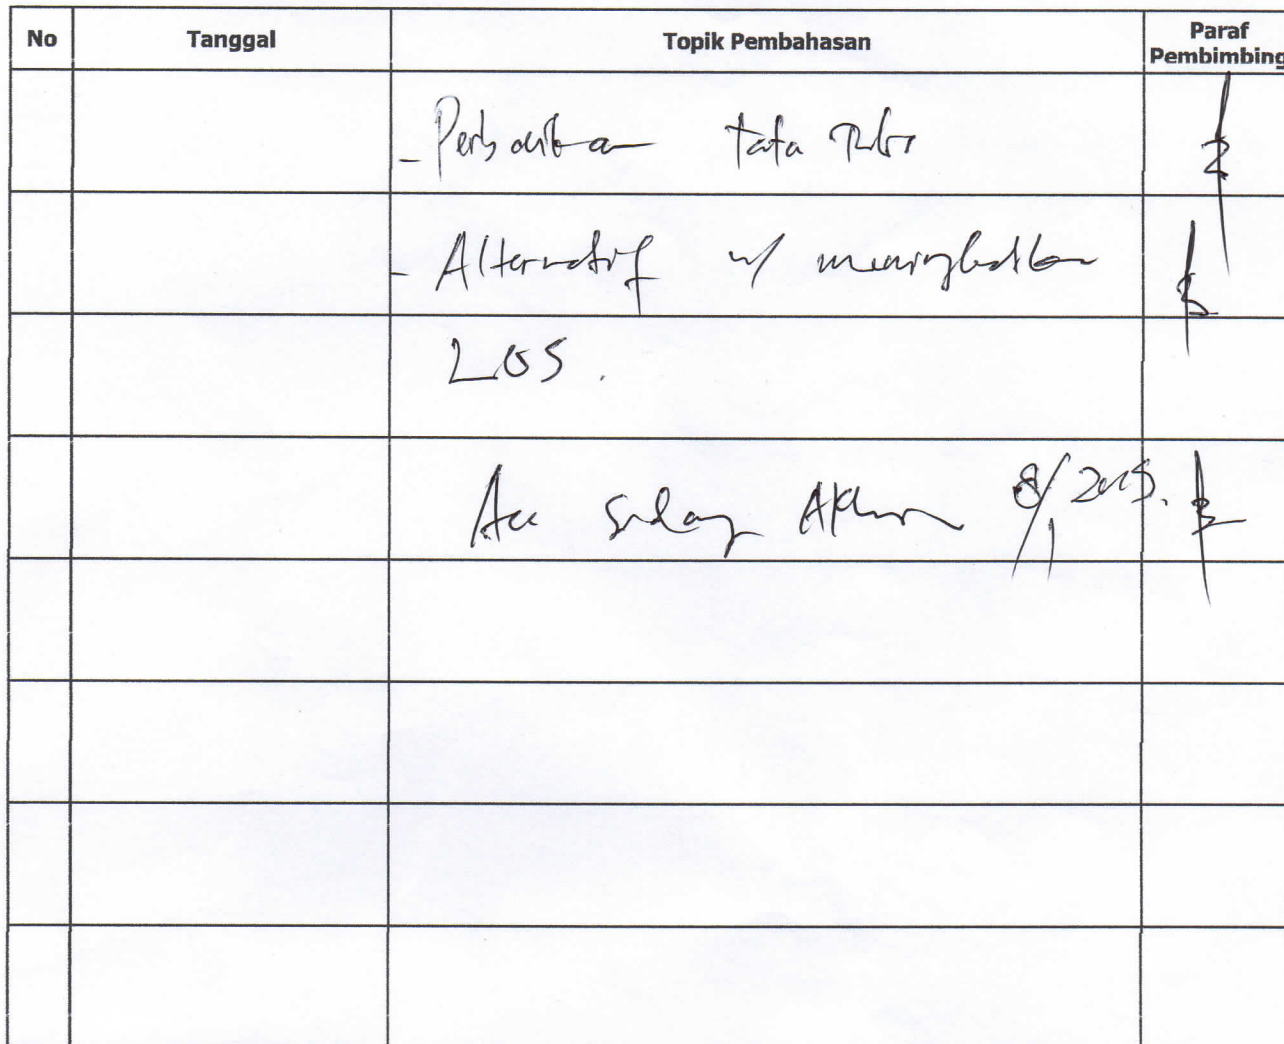 No Tanggal Topik Pembahasan Paraf Pembimbing
- Perbaikan tata tulis
- Alternatif u/ meningkatkan
LOS.
Acc Sidang Akhir 8/1 2015.